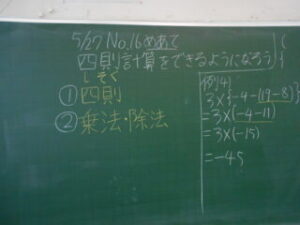 5/27 No.16 めあて
四則計算をできるようになろう
しそく
① 四則
② 乗法・除法
例4
3×{-4-(19-8)}
=3×(-4-11)
=3×(-15)
=-45